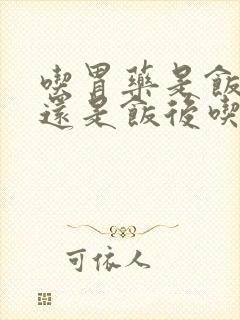 喫胃藥是飯
還是飯後喫
可依人